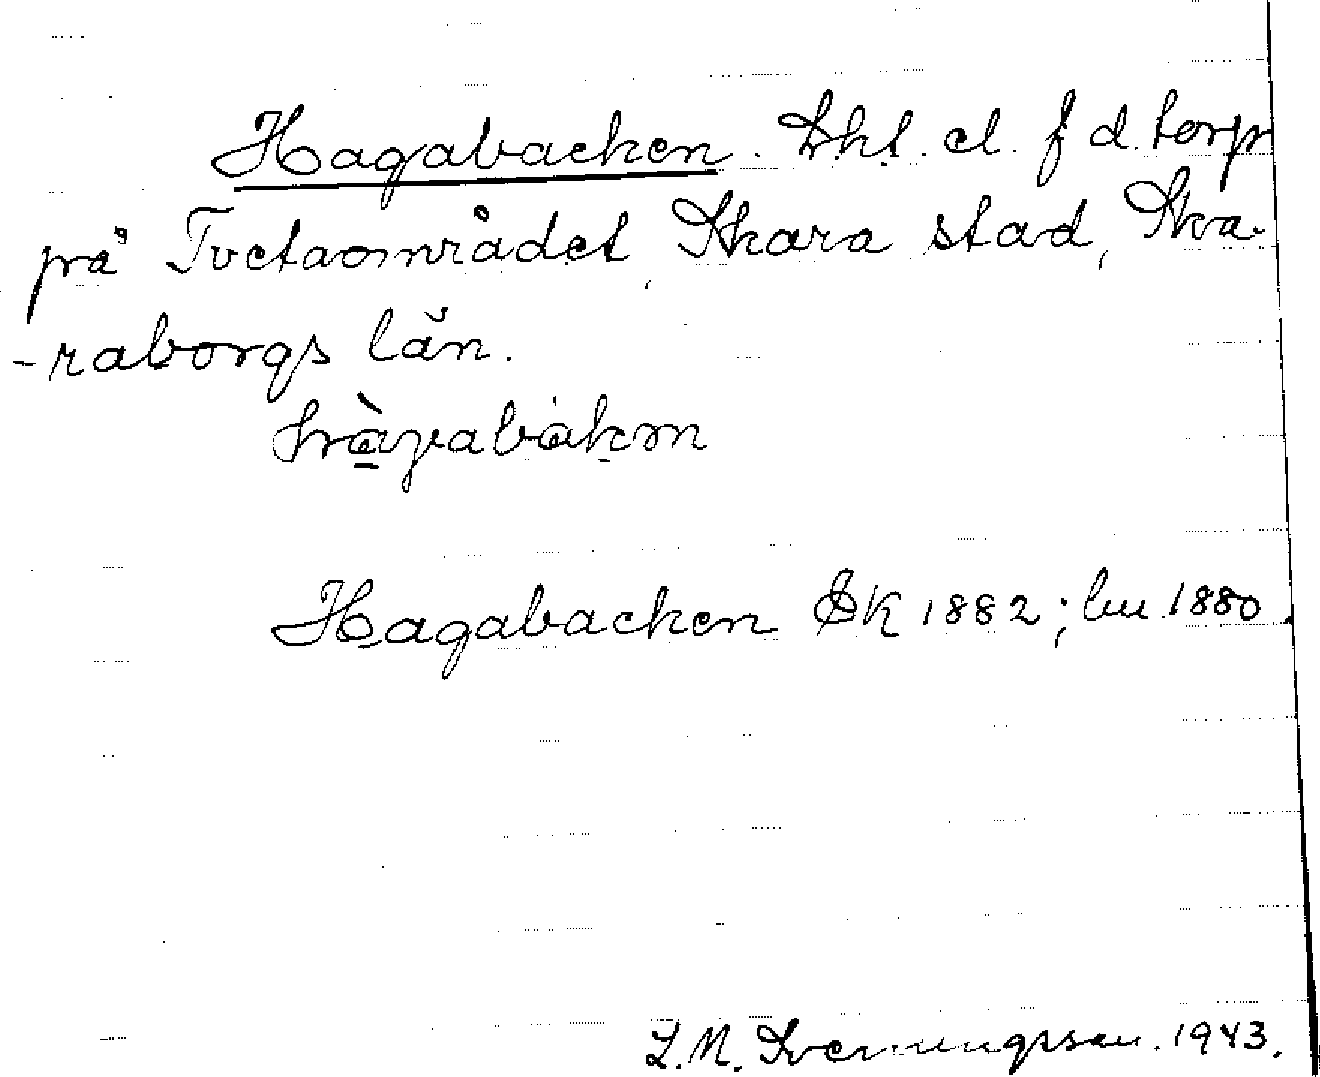 Hagabacken. Lht. el. f d. torp
på Tvetaområdet, Skara stad, Ska-
-raborgs län.
hàgabakən
Hagabacken EK 1882; lm 1880.
L. M. Svenungsson. 1943.